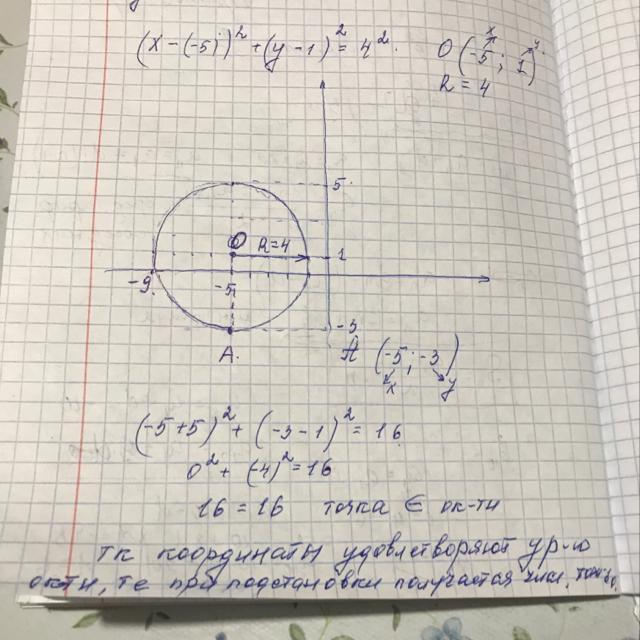 (x-(-5))² + (y-1)² = 4².
O (-5; 1)
x
R = 4
5
O R=4 1
-9 -5
-3
A. A (-5; -3)
x y
(-5+5)² + (-3-1)² = 16
0² + (-4)² = 16
16 = 16 точка ∈ ок-ти
тк координаты удовлетворяют ур-ю
ок-ти, т.е при подстановки получается